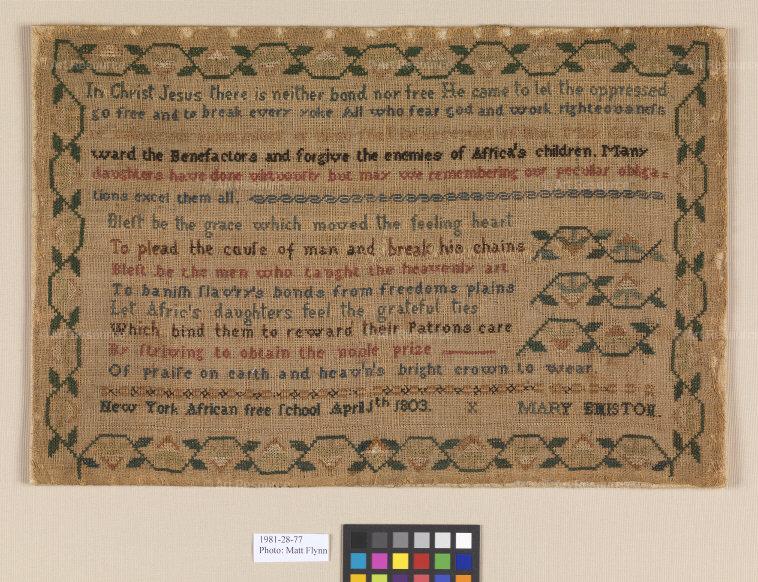 In Christ Jesus there is neither bond nor free He came to let the oppressed
go free and to break every yoke All who fear god and work righteousneſs
ward the Benefactors and forgive the enemies of Africa's children. Many
daughters have done virtuouſly but may we remembering our peculiar obliga=
tions excel them all.
Bleſt be the grace which moved the feeling heart
To plead the cauſe of man and break his chains
Bleſt be the men who taught the heavenly art
To baniſh ſlav'ry's bonds from freedoms plains
Let Afric's daughters feel the grateful ties
Which bind them to reward their Patrons care
By ſtriving to obtain the noble prize
Of praiſe on earth and heav'n's bright crown to wear.
New York African free ſchool April 1th 1803. X MARY EMISTON.
1981-28-77
Photo: Matt Flynn